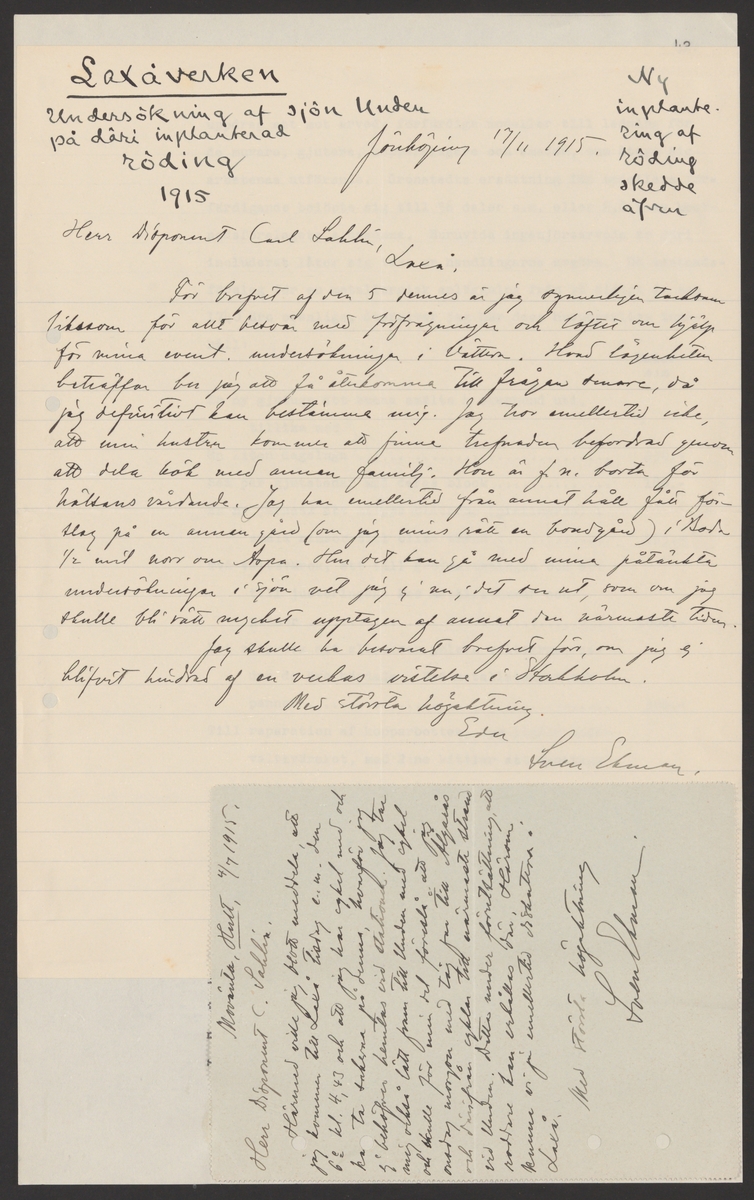 Laxåverken
Undersökning af sjön Unden
på däri inplanterad
röding
1915
Ny
inplante-
ring af
röding
skedde
äfven
Jönköping 17/11 1915.
Herr Disponent Carl Sahlin,
Laxå.
För brefvet af den 5 dennes är jag synnerligen tacksam
liksom för allt besvär med förfrågningar och löftet om hjälp
för mina event. undersökningar i Vättern. Hvad lägenheten
beträffar ber jag att få återkomma till frågan senare, då
jag definitivt kan bestämma mig. Jag tror emellertid icke,
att min hustru kommer att finna trefnaden befordrad genom
att dela kök med annan familj. Hon är f. n. borta för
hälsans vårdande. Jag har emellertid från annat håll fått för-
slag på en annan gård (om jag mins rätt en bondgård) i Boda
1/2 mil norr om Aspa. Hur det kan gå med mina påtänkta
undersökningar i sjön vet jag ej nu; det ser ut, som om jag
skulle bli rätt mycket upptagen af annat den närmaste tiden.
Jag skulle ha besvarat brefvet förr, om jag ej
blifvit hindrad af en veckas vistelse i Stockholm.
Med största högaktning.
Eder
Sven Ekman.
Movänta, Hult, 4/7 1915.
Herr Disponent C. Sahlin.
Härmed vill jag blott meddela, att
jag kommer till Laxå tisdag e. m. den
6e kl. 4,43 och att jag har cykel med och
kan ta sakerna på denna, hvarför jag
ej behöfver hemtas vid stationen. Jag tar
mig också lätt fram till Unden med cykel
och skulle för min del föreslå att jag
onsdag morgon med tåg far till Älgarås
och därifrån cyklar till närmaste strand
vid Unden. Detta under förutsättning, att
roddare kan erhållas där. Härom
kunna vi ju emellertid diskutera i
Laxå.
Med största högaktning
Sven Ekman.